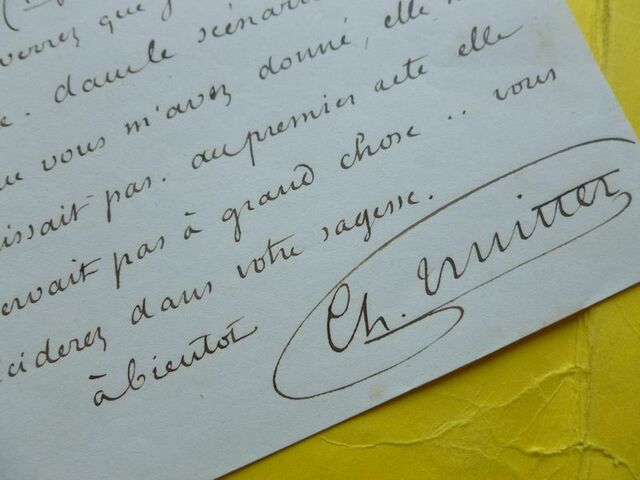 verrez que
. dans le scénario
que vous m'avez donné, elle
issait pas. au premier acte elle
ervait pas à grand chose .. vous
ciderez dans votre sagesse.
à bientot
Ch. Nuitter